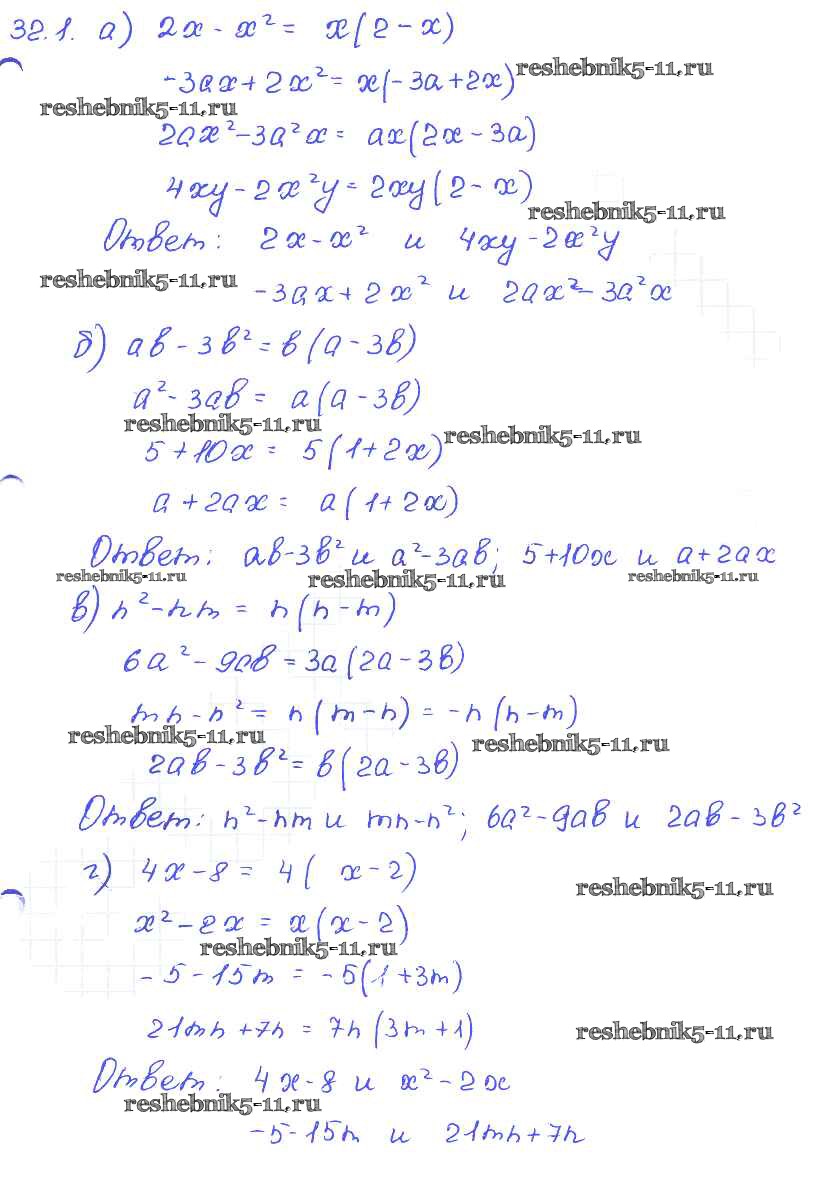 32.1. а) 2x - x² = x(2 - x)
-3ax + 2x² = x(-3a + 2x) reshebnik5-11.ru
reshebnik5-11.ru
2ax² - 3a²x = ax(2x - 3a)
4xy - 2x²y = 2xy(2 - x)
reshebnik5-11.ru
Ответ: 2x - x² и 4xy - 2x²y
reshebnik5-11.ru -3ax + 2x² и 2ax² - 3a²x
б) ав - 3в² = в(а - 3в)
а² - 3ав = а(а - 3в)
reshebnik5-11.ru reshebnik5-11.ru
5 + 10x = 5(1 + 2x)
a + 2ax = a(1 + 2x)
Ответ: ав - 3в² и а² - 3ав; 5 + 10x и a + 2ax
reshebnik5-11.ru reshebnik5-11.ru reshebnik5-11.ru
в) n² - nm = n(n - m)
6а² - 9ав = 3а(2а - 3в)
mn - n² = n(m - n) = -n(n - m)
reshebnik5-11.ru reshebnik5-11.ru
2ав - 3в² = в(2а - 3в)
Ответ: n² - nm и mn - n²; 6а² - 9ав и 2ав - 3в²
г) 4x - 8 = 4( x - 2)
reshebnik5-11.ru
x² - 2x = x(x - 2)
reshebnik5-11.ru
-5 - 15m = -5(1 + 3m)
21mn + 7n = 7n(3m + 1)
reshebnik5-11.ru
Ответ: 4x - 8 и x² - 2x
reshebnik5-11.ru
-5 - 15m и 21mn + 7n